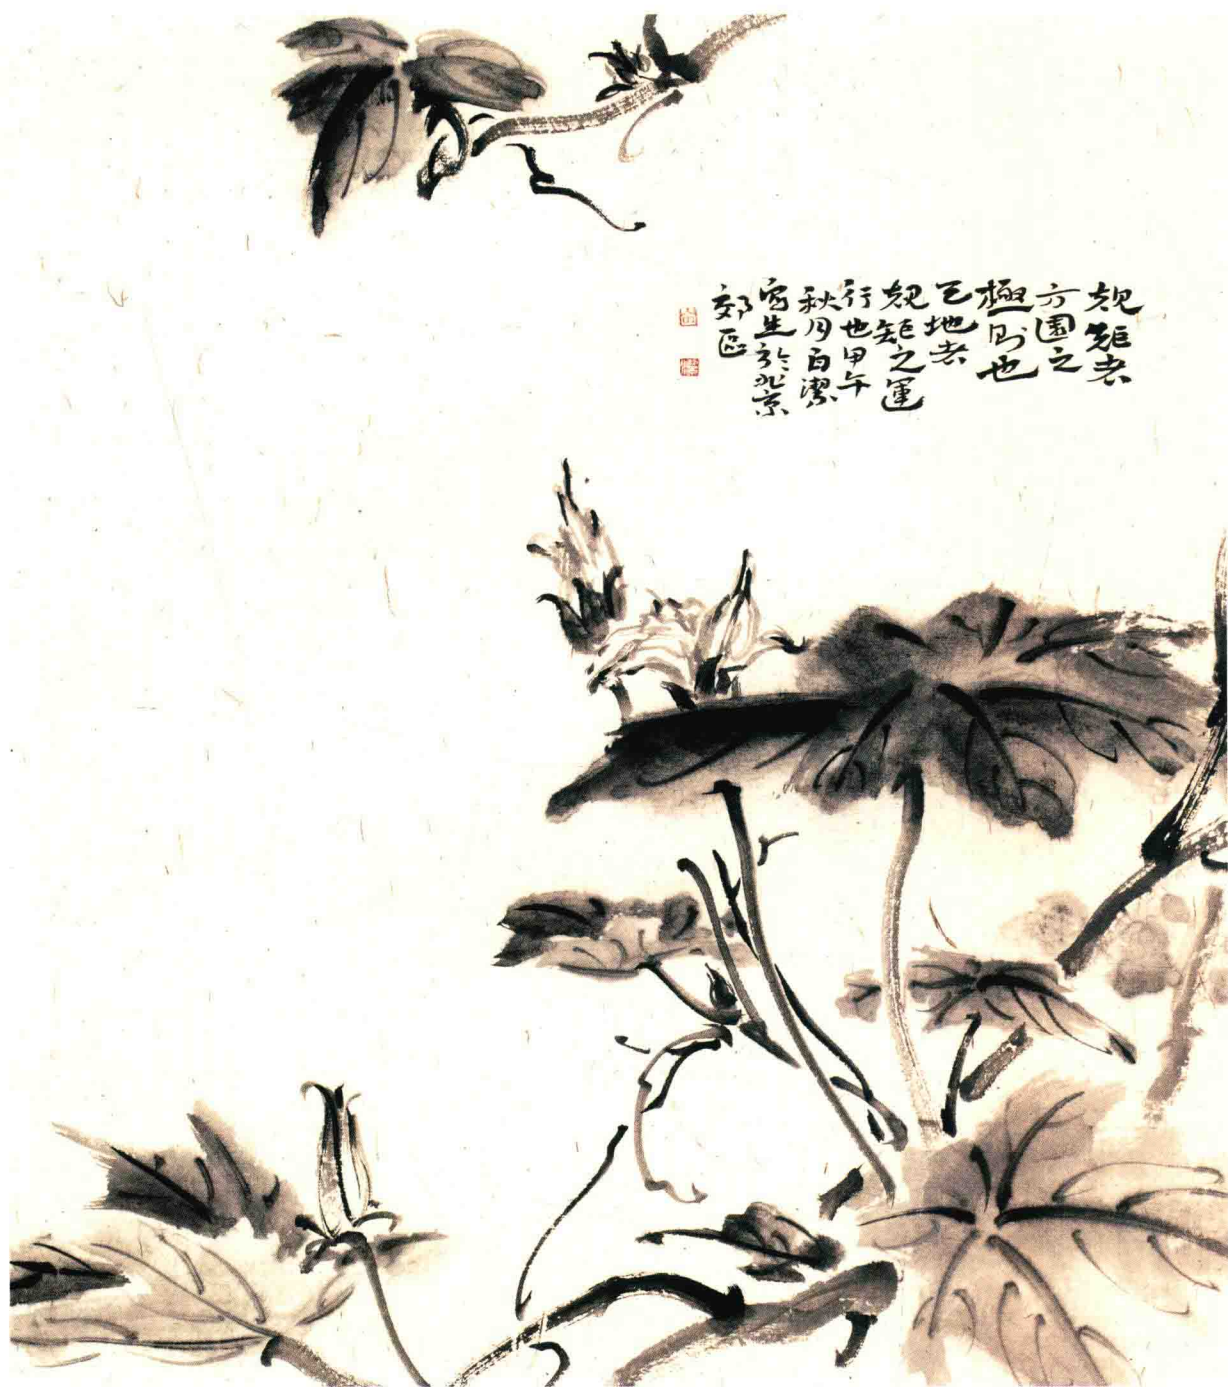 規矩者
方圓之
極則也
天地者
規矩之運
行也甲午
秋月白潔
寫生於北京
郊區